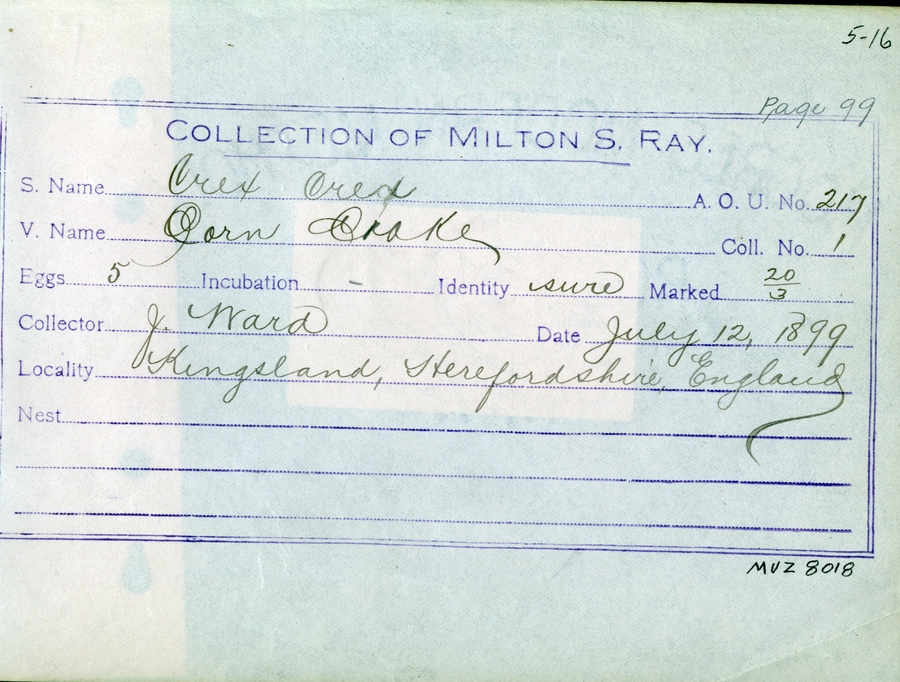 5-16
Page 99
COLLECTION OF MILTON S. RAY.
S. Name Crex Crex A. O. U. No. 217
V. Name Corn Crake Coll. No. 1
Eggs 5 Incubation - Identity sure Marked 20/3
Collector J. Ward Date July 12, 1899
Locality Kingsland, Herefordshire, England
Nest
MVZ 8018